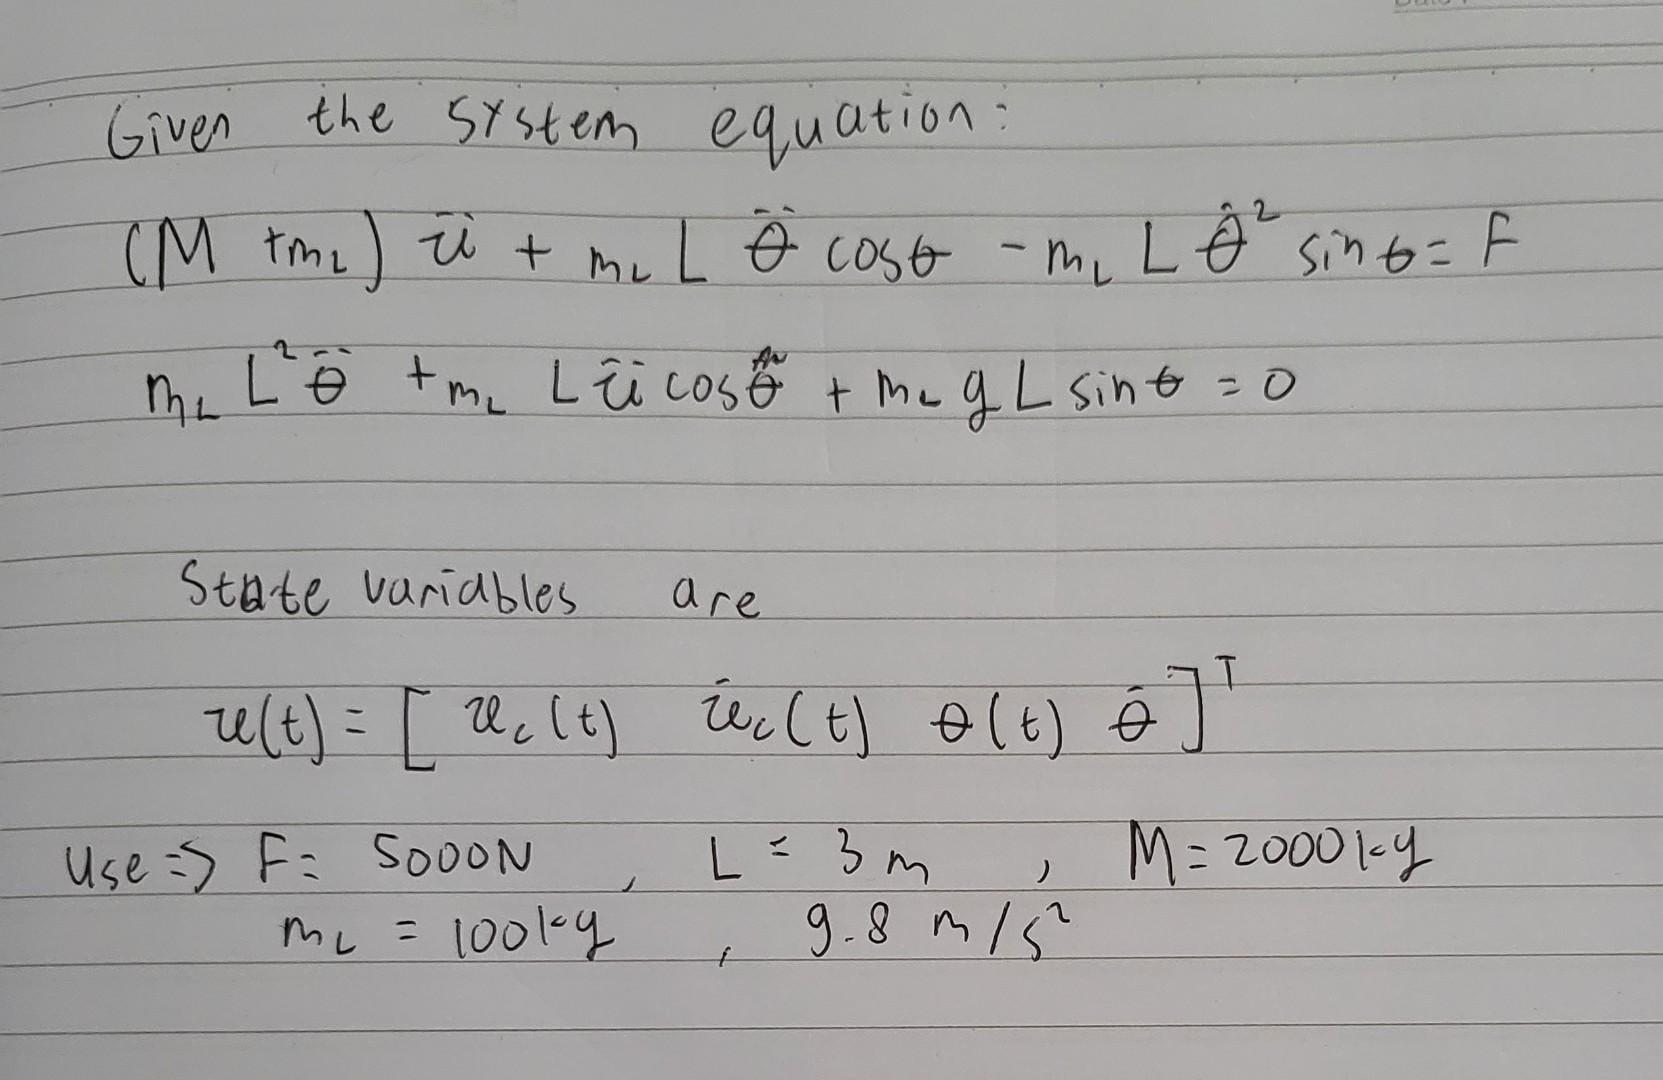 Given the system equation:
(M + m_L) ẍ + m_L L θ̈ cosθ - m_L L θ̇² sinθ = F
m_L L² θ̈ + m_L L ẍ cosθ + m_L g L sinθ = 0
State variables are
x(t) = [ x_c(t) ẋ_c(t) θ(t) θ̇ ]ᵀ
Use => F = 5000N , L = 3 m , M = 2000kg
m_L = 100kg , 9.8 m/s²